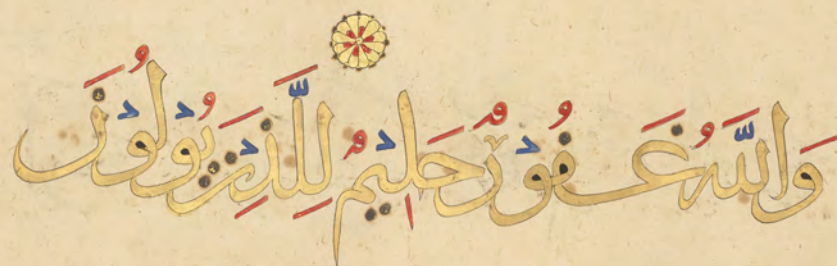 وَاللَّهُ غَفُورٌ حَلِيمٌ لِلَّذِينَ يُولُونَ